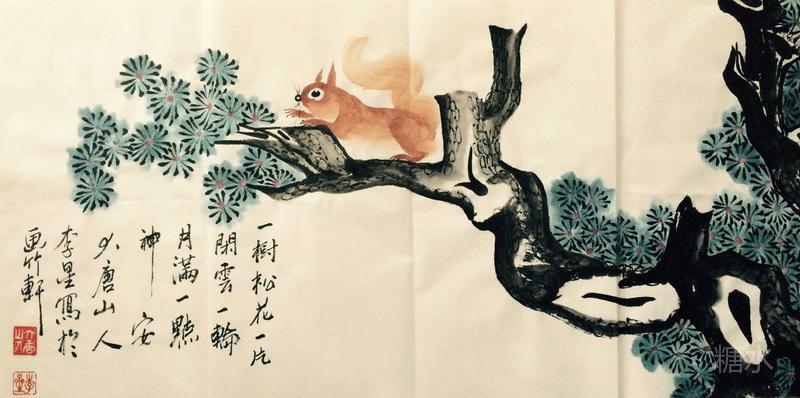 一樹松花一片
閑雲一輪
月滿一點
神安
大唐山人
李星寫於
画竹軒
糖水